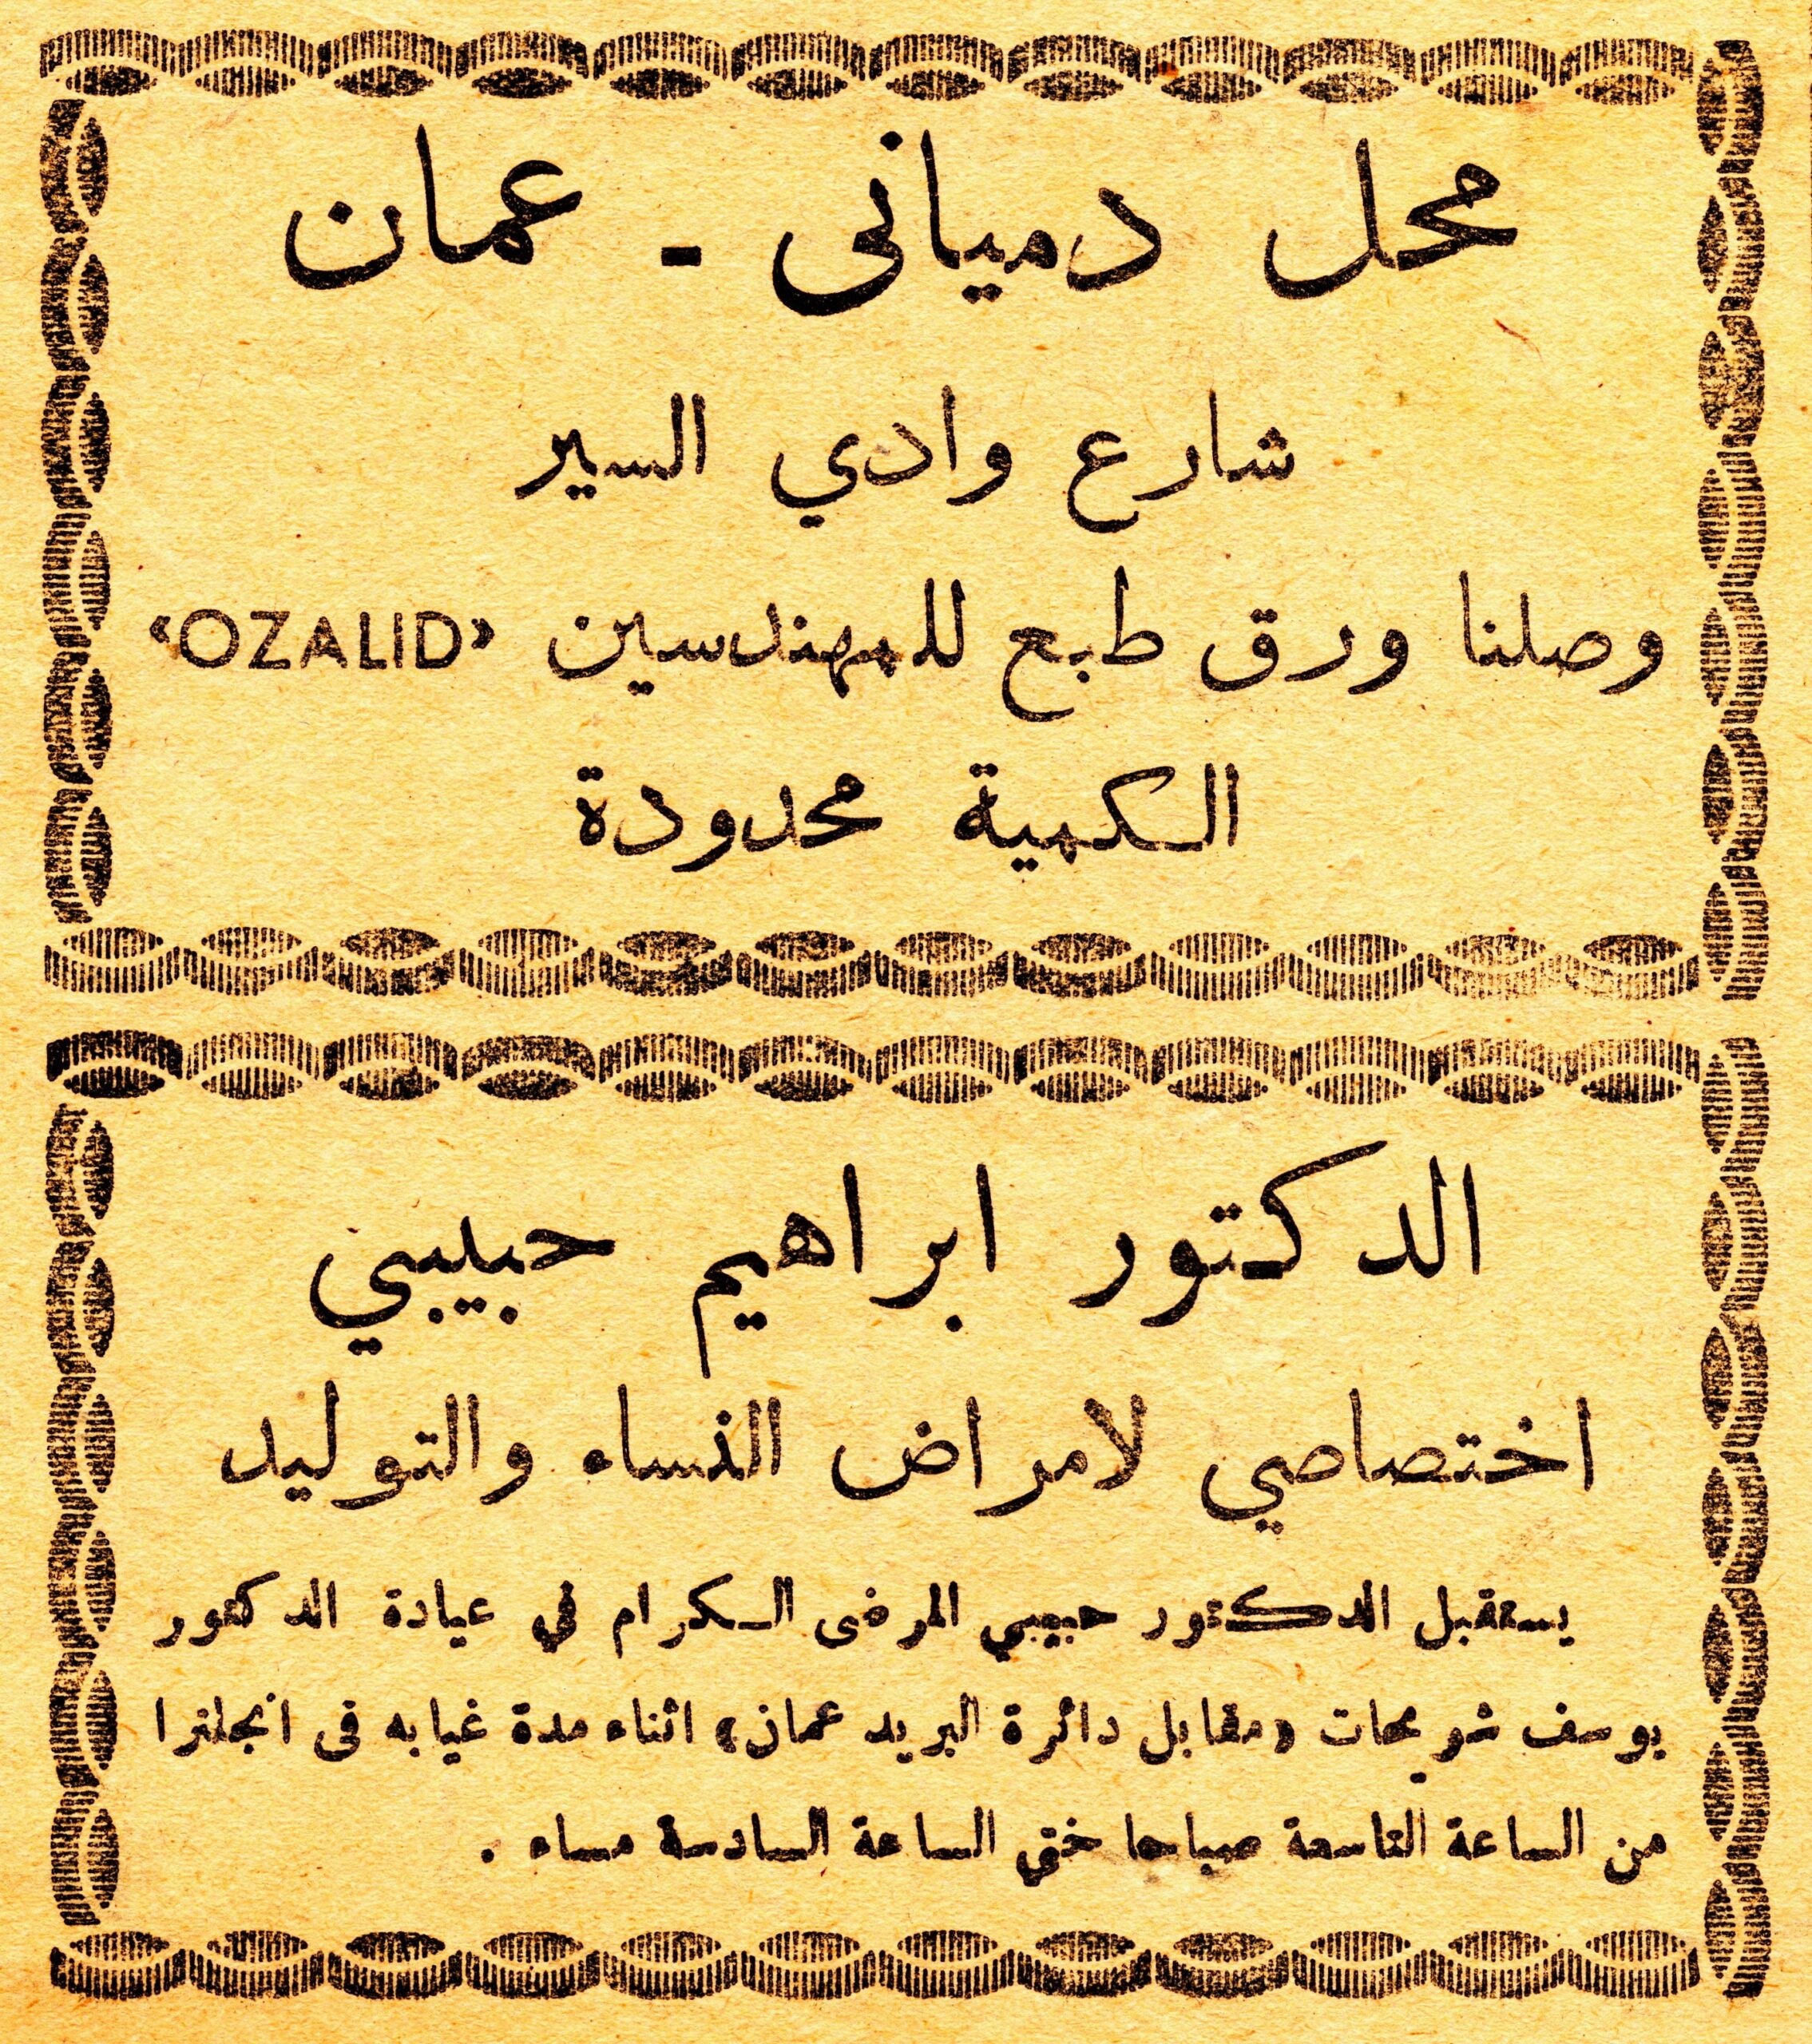 محل دميانى - عمان
شارع وادي السير
وصلنا ورق طبع للمهندسين «OZALID»
الكمية محدودة
الدكتور ابراهيم حبيبي
اختصاصي لامراض النساء والتوليد
يستقبل الدكتور حبيبي المرضى الكرام في عيادة الدكتور
يوسف شويحات «مقابل دائرة البريد عمان» اثناء مدة غيابه فى انجلترا
من الساعة التاسعة صباحا ختى الساعة السادسة مساء .